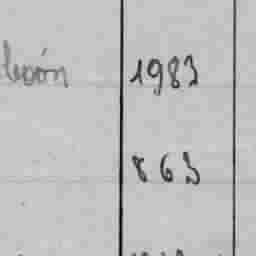 león 1983
863